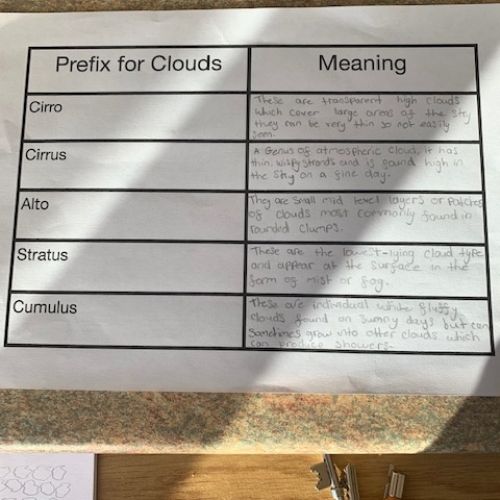 Prefix for Clouds
Meaning
Cirro
These are transparent high clouds
which cover large areas of the sky
they can be very thin so not easily
seen.
Cirrus
A Genus of atmospheric cloud, it has
thin, wispy strands and is found high in
the sky on a fine day.
Alto
They are small mid level layers or Patches
of clouds most commonly found in
rounded clumps.
Stratus
These are the lowest-lying cloud type
and appear at the surface in the
form of mist or fog.
Cumulus
These are individual white fluffy
clouds found on sunny days but can
sometimes grow into other clouds which
can produce showers-